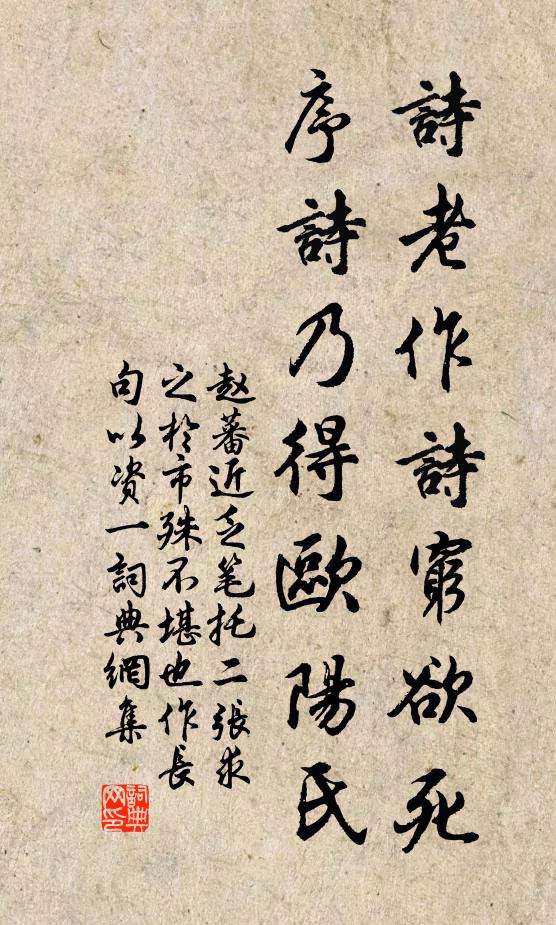 詩老作詩窮欲死
序詩乃得歐陽氏
赵蕃近乏笔托二張求
之於市殊不堪也作長
句以资一詞典網集
詞典
网印